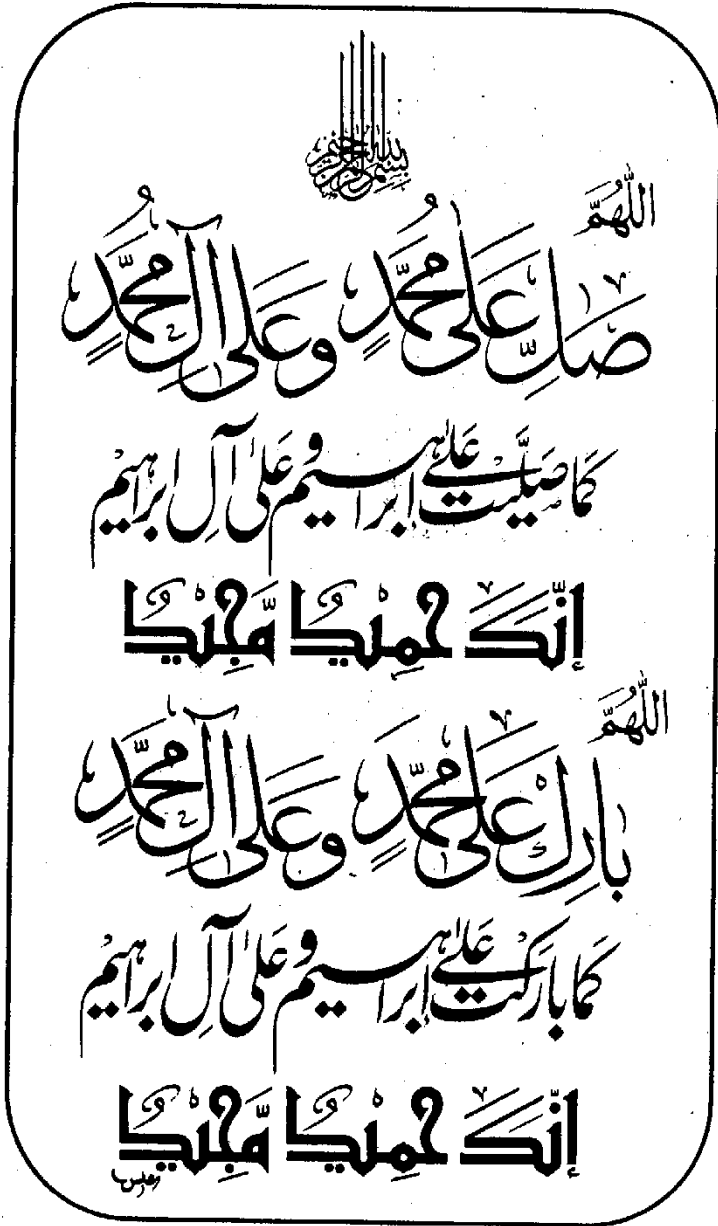 بسم الله الرحمن الرحيم
اللّٰهُمَّ
صَلِّ عَلٰى مُحَمَّدٍ وَّعَلٰى آلِ مُحَمَّدٍ
كَمَا صَلَّيْتَ عَلٰى اِبْرَاهِيْمَ وَعَلٰى آلِ اِبْرَاهِيْمَ
اِنَّكَ حَمِيْدٌ مَّجِيْدٌ
اللّٰهُمَّ
بَارِكْ عَلٰى مُحَمَّدٍ وَّعَلٰى آلِ مُحَمَّدٍ
كَمَا بَارَكْتَ عَلٰى اِبْرَاهِيْمَ وَعَلٰى آلِ اِبْرَاهِيْمَ
اِنَّكَ حَمِيْدٌ مَّجِيْدٌ